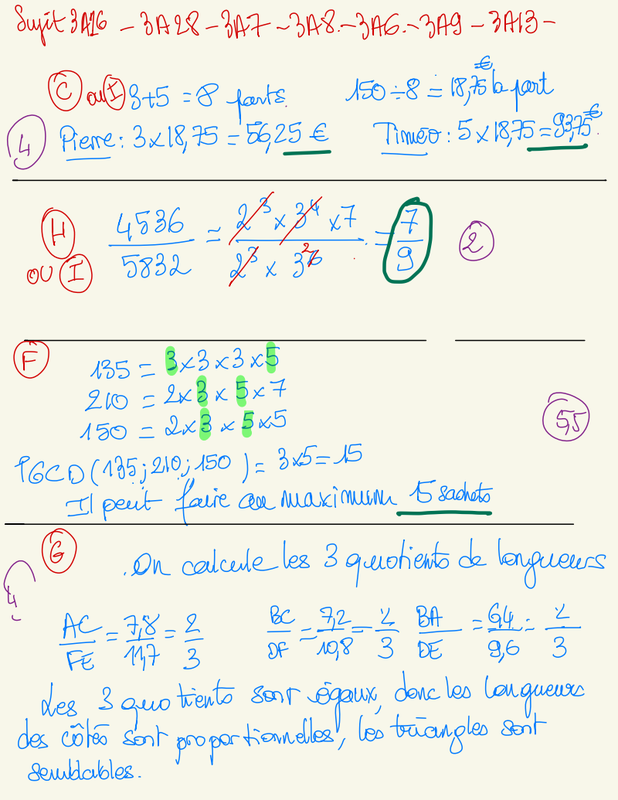 Sujet 3A26 - 3A28 - 3A7 - 3A8 - 3A6 - 3A9 - 3A13 -
C ou I 3+5 = 8 parts. 150 ÷ 8 = 18,75 € la part
4 Pierre : 3 x 18,75 = 56,25 € Timéo : 5 x 18,75 = 93,75 €.
H ou I 4536/5832 = 2³ x 3⁴ x 7 / 2³ x 3⁶ = 7/9 2
F
135 = 3 x 3 x 3 x 5
210 = 2 x 3 x 5 x 7
150 = 2 x 3 x 5 x 5
5,5
PGCD (135 ; 210 ; 150) = 3 x 5 = 15
Il peut faire au maximum 15 sachets
G
On calcule les 3 quotients de longueurs
4
AC/FE = 7,8/11,7 = 2/3 BC/DF = 7,2/10,8 = 2/3 BA/DE = 6,4/9,6 = 2/3
Les 3 quotients sont égaux, donc les longueurs
des côtés sont proportionnelles, les triangles sont
semblables.